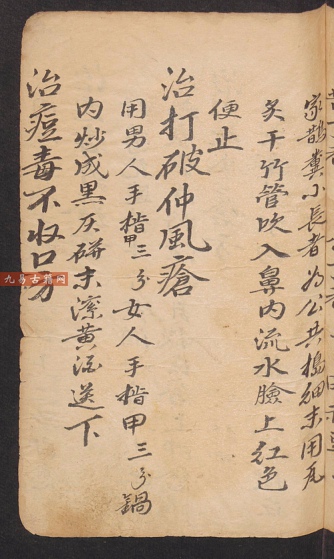 家鵲糞小長者為公共搗細末用瓦
炙干竹管吹入鼻內流水臉上紅色
便止
治打破仲風瘡
用男人手楷甲三分女人手楷甲三分鍋
內炒成黑灰研末滚黄酒送下
治痘毒不收口方
九易古籍网